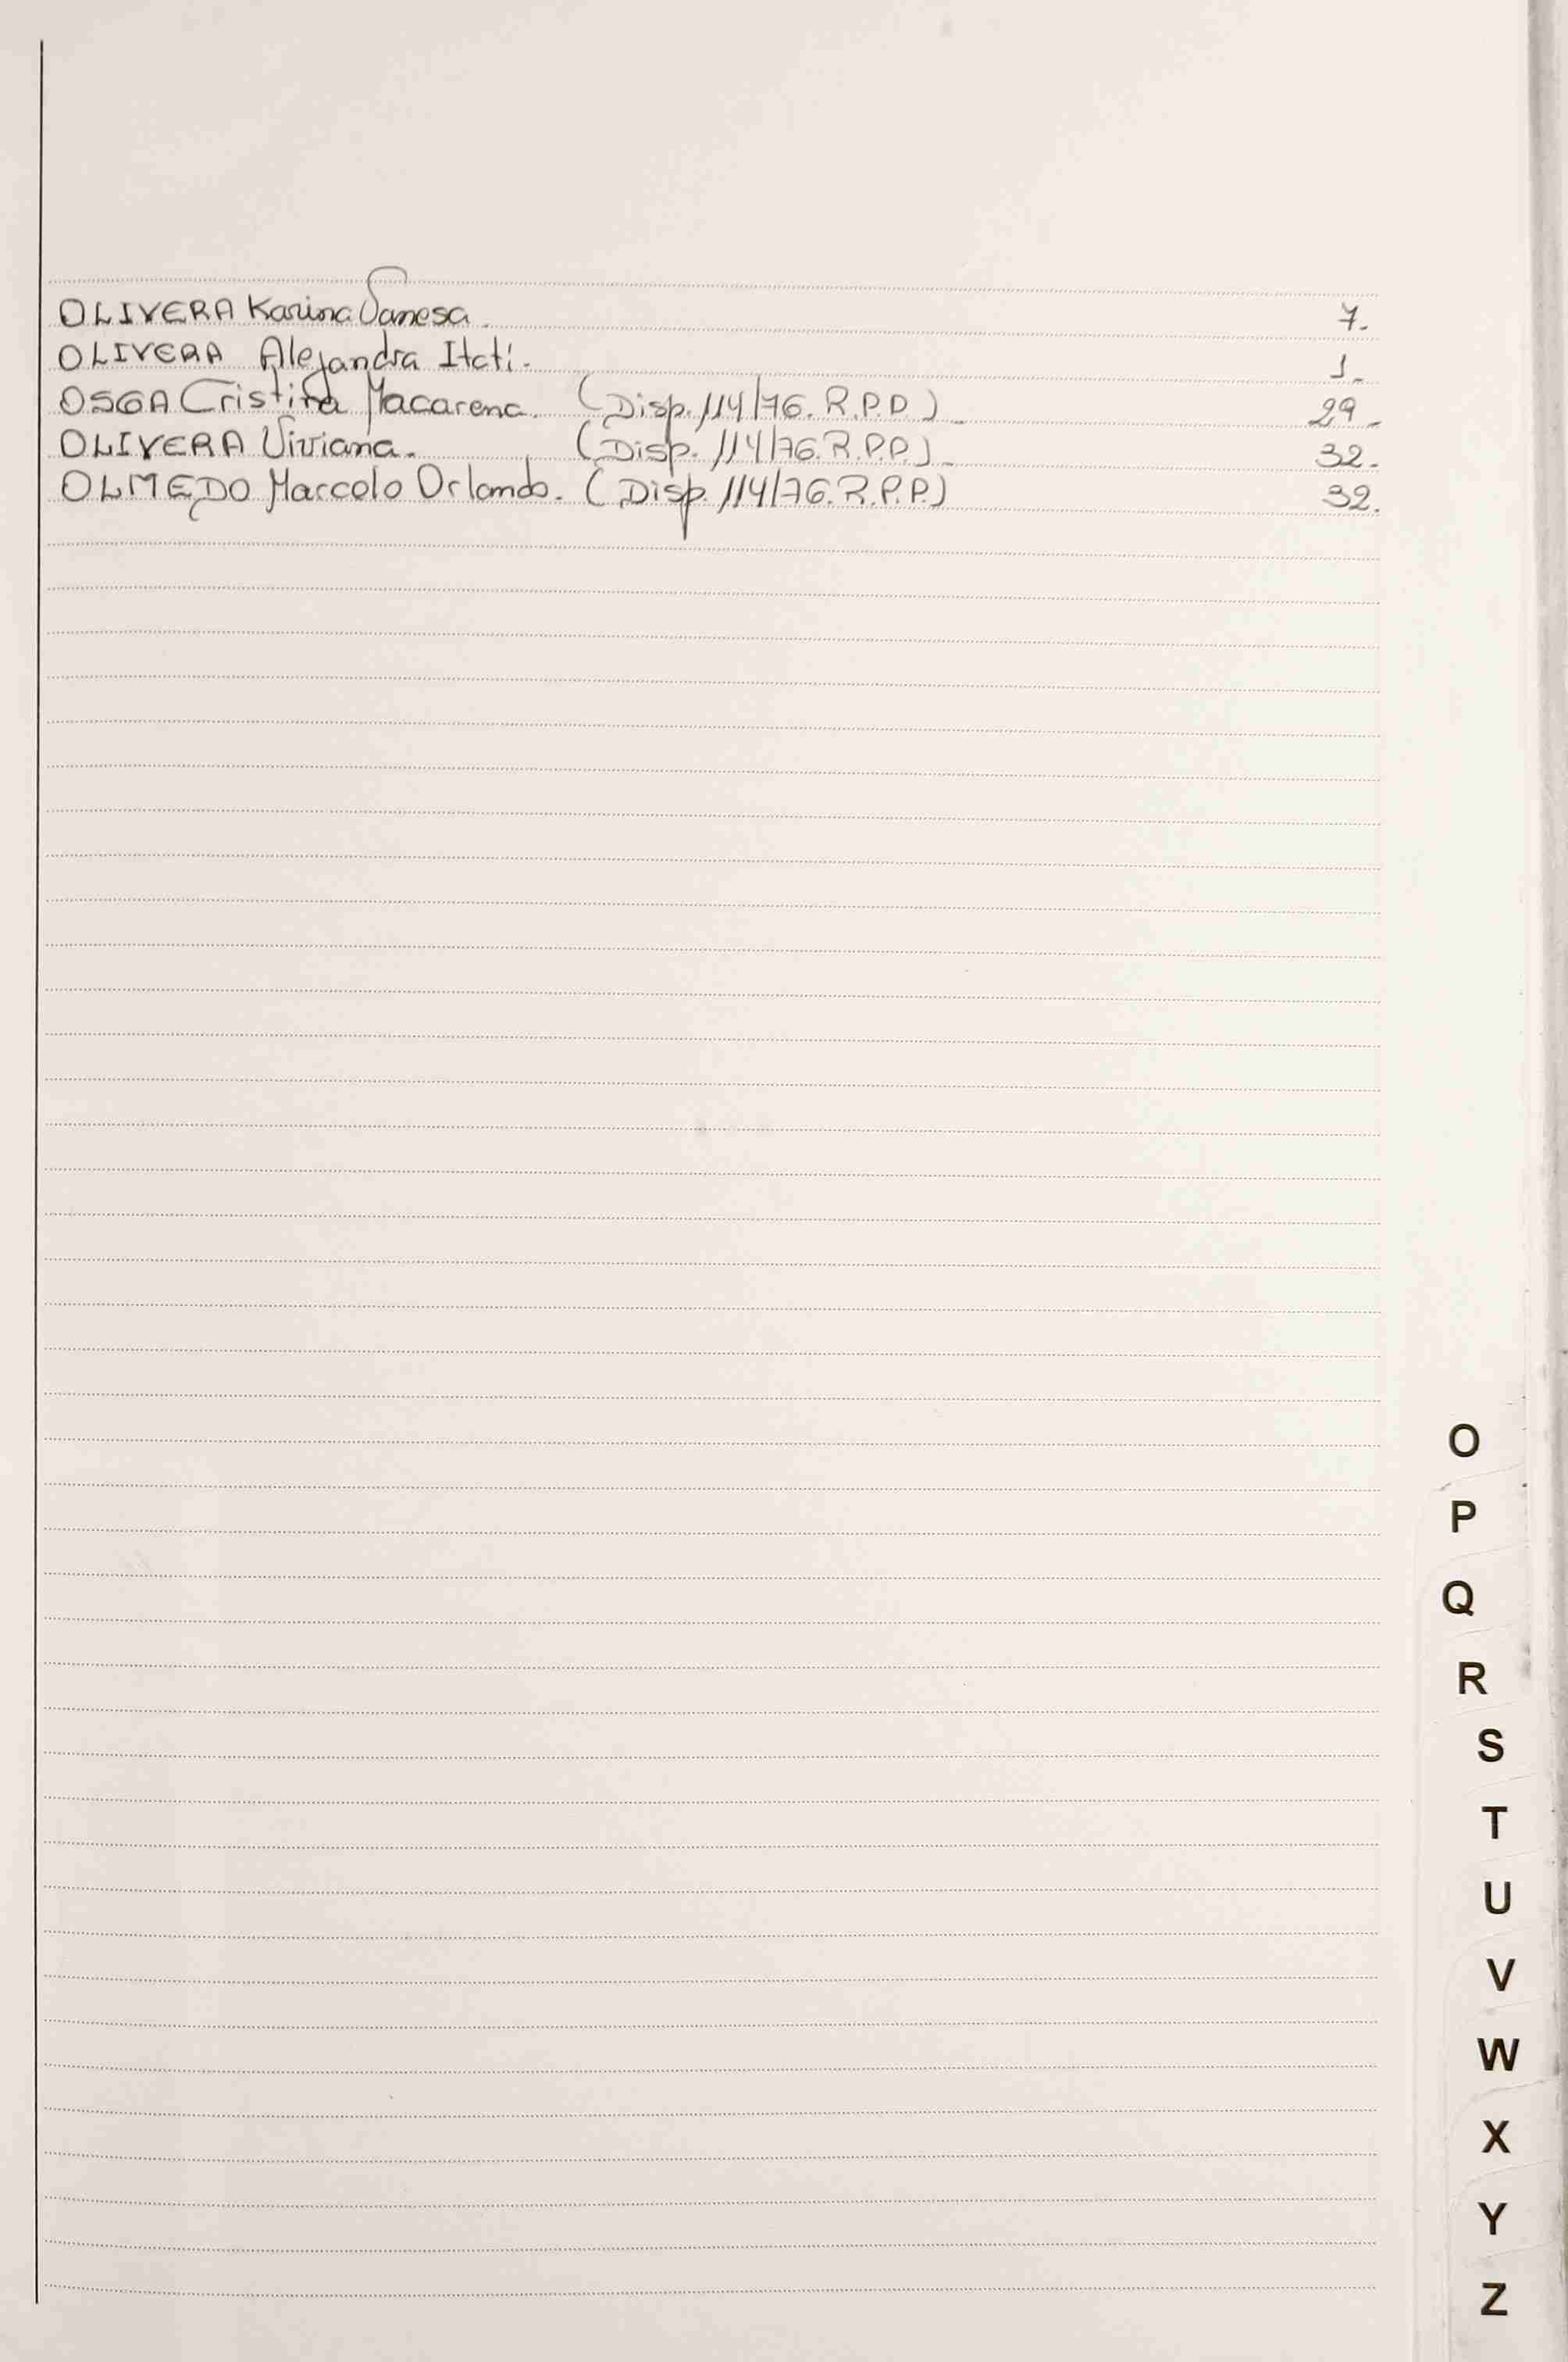 OLIVERA Karina Vanesa. 7.
OLIVERA Alejandra Itatí. 1.
OSGA Cristina Macarena. (Disp. 114/76. R.P.P.) 29.
OLIVERA Viviana. (Disp. 114/76. R.P.P.) 32.
OLMEDO Marcelo Orlando. (Disp. 114/76. R.P.P.) 32.
O
P
Q
R
S
T
U
V
W
X
Y
Z